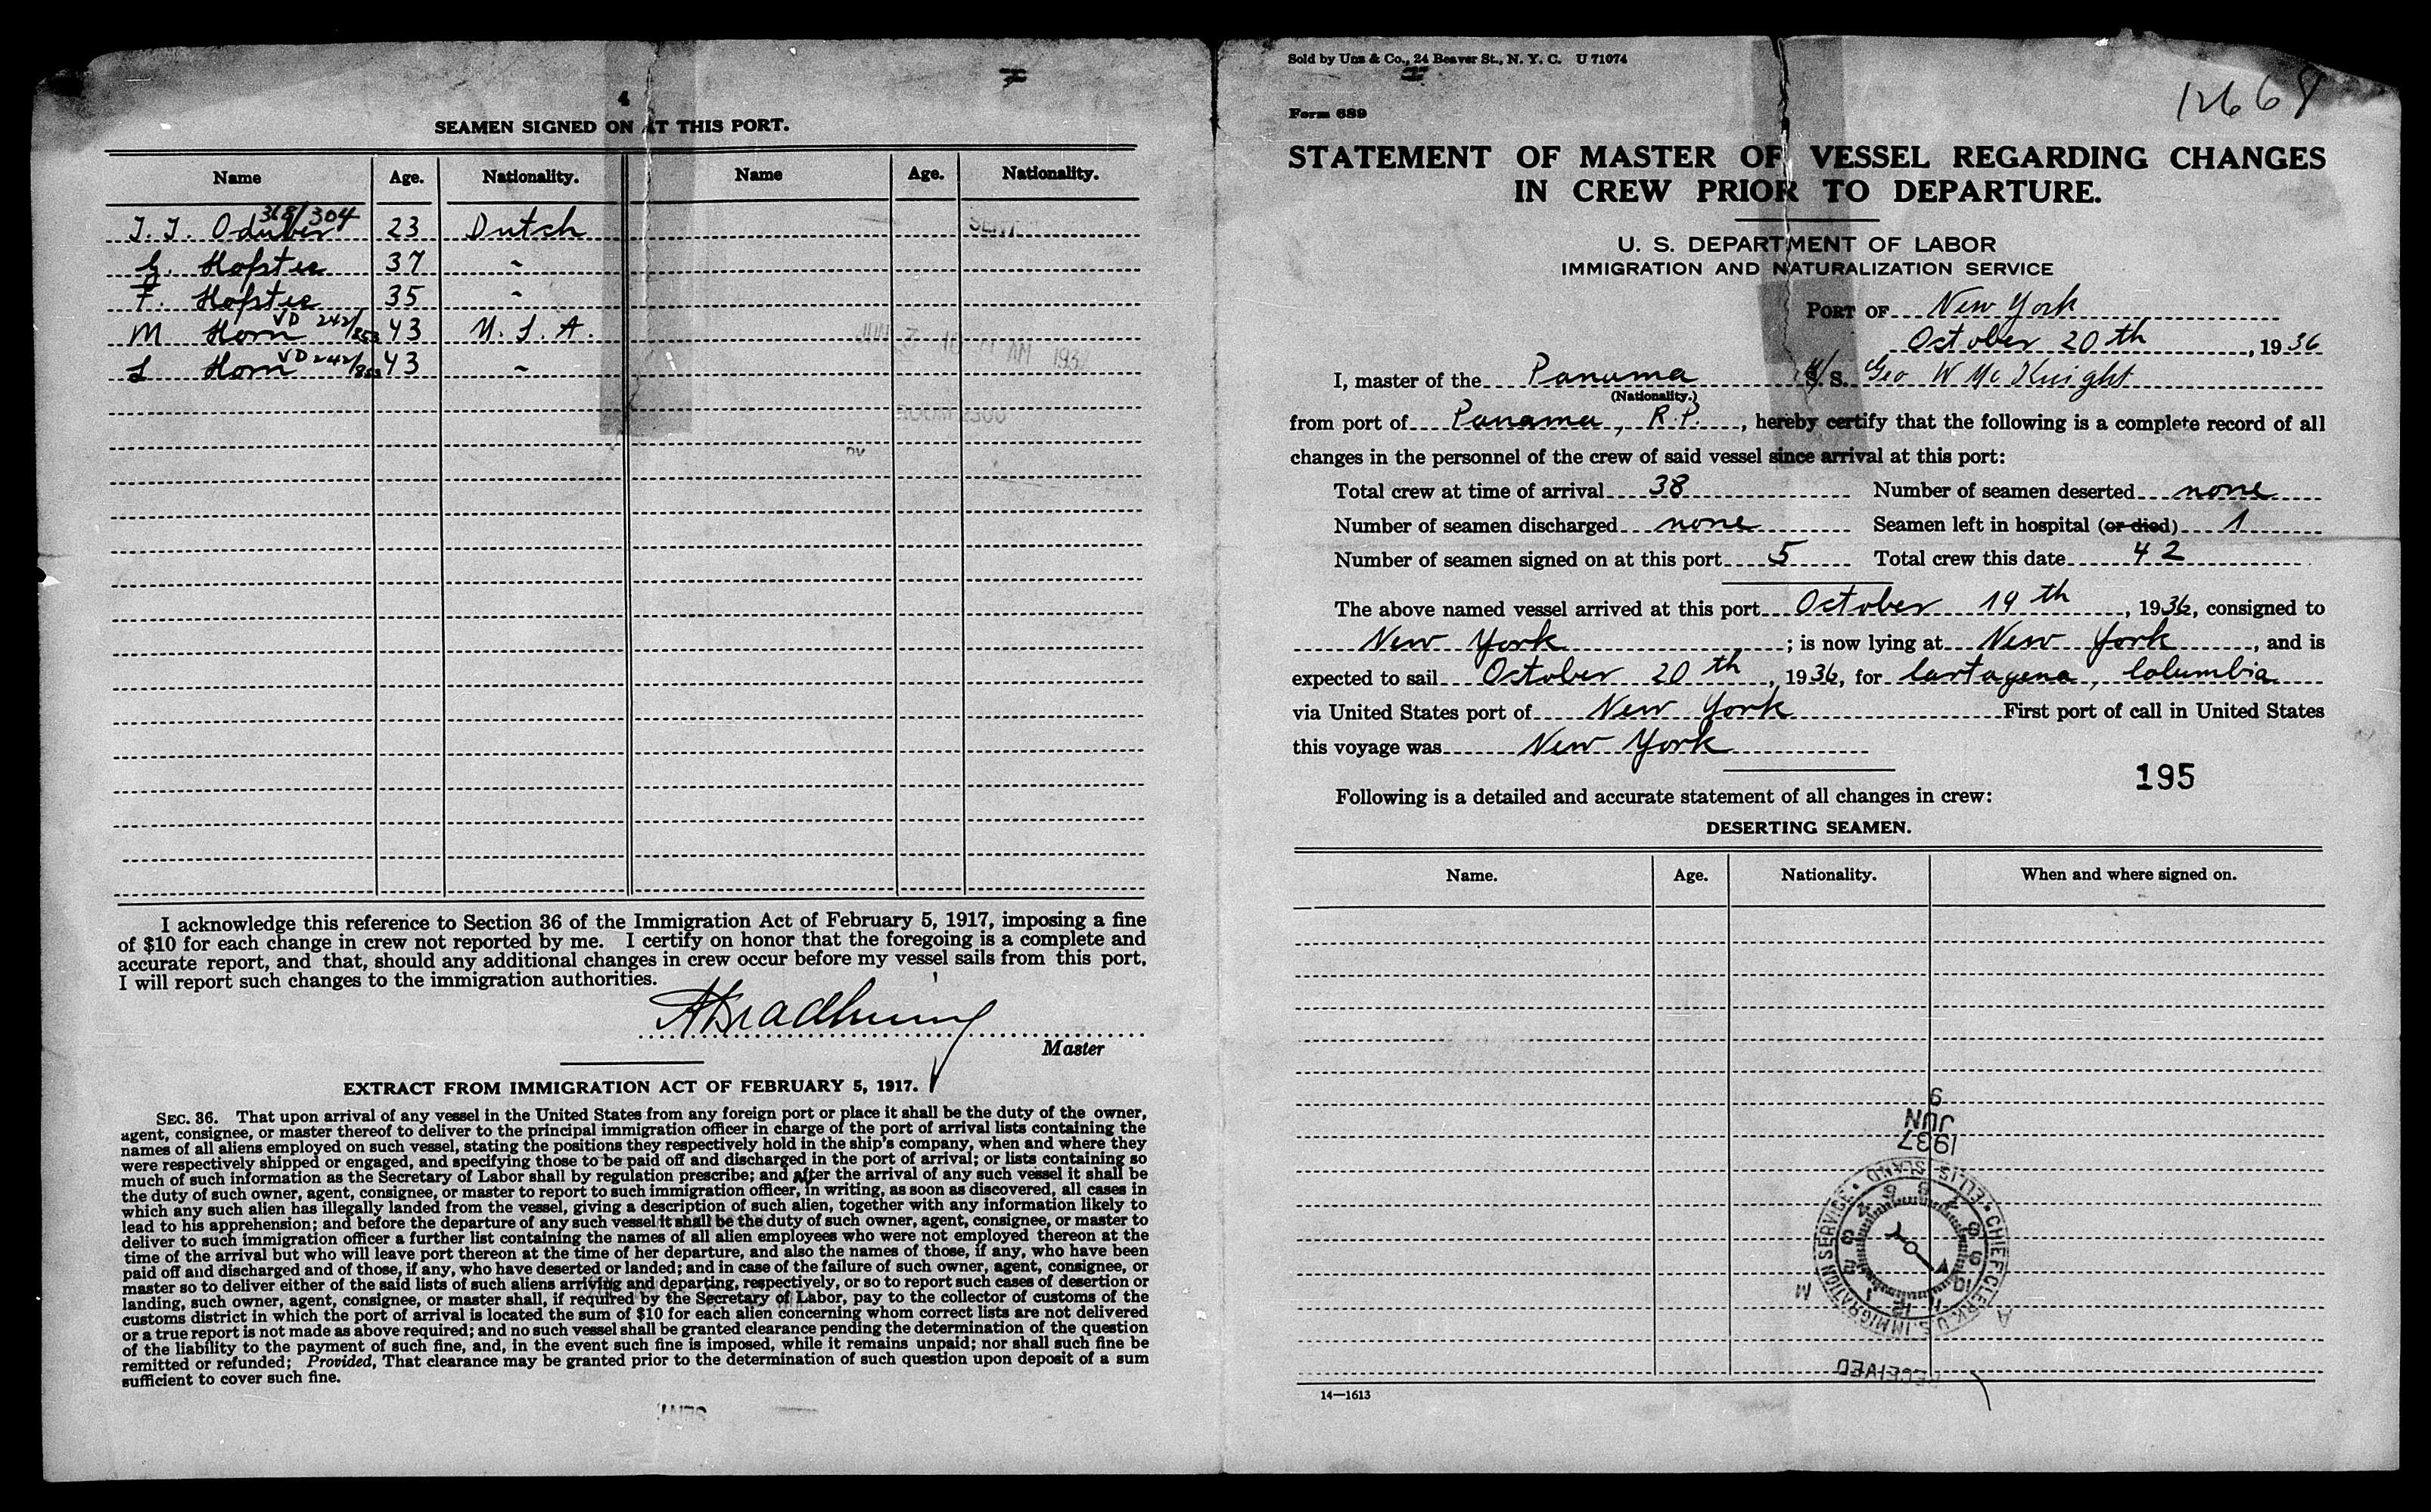 4
SEAMEN SIGNED ON AT THIS PORT.
Name Age. Nationality. Name Age. Nationality.
368/304
J. J. Oduber 23 Dutch
G. Hofstee 37 "
F. Hofstee 35 "
M Horn VD 242/853 43 U. S. A.
L Horn VD 242/853 43 "
I acknowledge this reference to Section 36 of the Immigration Act of February 5, 1917, imposing a fine
of $10 for each change in crew not reported by me. I certify on honor that the foregoing is a complete and
accurate report, and that, should any additional changes in crew occur before my vessel sails from this port,
I will report such changes to the immigration authorities.
Master
EXTRACT FROM IMMIGRATION ACT OF FEBRUARY 5, 1917.
SEC. 36. That upon arrival of any vessel in the United States from any foreign port or place it shall be the duty of the owner,
agent, consignee, or master thereof to deliver to the principal immigration officer in charge of the port of arrival lists containing the
names of all aliens employed on such vessel, stating the positions they respectively hold in the ship's company, when and where they
were respectively shipped or engaged, and specifying those to be paid off and discharged in the port of arrival; or lists containing so
much of such information as the Secretary of Labor shall by regulation prescribe; and after the arrival of any such vessel it shall be
the duty of such owner, agent, consignee, or master to report to such immigration officer, in writing, as soon as discovered, all cases in
which any such alien has illegally landed from the vessel, giving a description of such alien, together with any information likely to
lead to his apprehension; and before the departure of any such vessel it shall be the duty of such owner, agent, consignee, or master to
deliver to such immigration officer a further list containing the names of all alien employees who were not employed thereon at the
time of the arrival but who will leave port thereon at the time of her departure, and also the names of those, if any, who have been
paid off and discharged and of those, if any, who have deserted or landed; and in case of the failure of such owner, agent, consignee, or
master so to deliver either of the said lists of such aliens arriving and departing, respectively, or so to report such cases of desertion or
landing, such owner, agent, consignee, or master shall, if required by the Secretary of Labor, pay to the collector of customs of the
customs district in which the port of arrival is located the sum of $10 for each alien concerning whom correct lists are not delivered
or a true report is not made as above required; and no such vessel shall be granted clearance pending the determination of the question
of the liability to the payment of such fine, and, in the event such fine is imposed, while it remains unpaid; nor shall such fine be
remitted or refunded; Provided, That clearance may be granted prior to the determination of such question upon deposit of a sum
sufficient to cover such fine.
Sold by Unz & Co., 24 Beaver St., N. Y. C. U 71074
Form 689
12668
STATEMENT OF MASTER OF VESSEL REGARDING CHANGES
IN CREW PRIOR TO DEPARTURE.
U. S. DEPARTMENT OF LABOR
IMMIGRATION AND NATURALIZATION SERVICE
PORT OF New York
October 20th, 1936
I, master of the Panama S. S. Geo W Mc Knight
(Nationality.)
from port of Panama, R.P., hereby certify that the following is a complete record of all
changes in the personnel of the crew of said vessel since arrival at this port:
Total crew at time of arrival 38 Number of seamen deserted none
Number of seamen discharged none Seamen left in hospital (or died) 1
Number of seamen signed on at this port 5 Total crew this date 42
The above named vessel arrived at this port October 19th, 1936, consigned to
New York; is now lying at New York, and is
expected to sail October 20th, 1936, for Cartagena, Columbia
via United States port of New York First port of call in United States
this voyage was New York
195
Following is a detailed and accurate statement of all changes in crew:
DESERTING SEAMEN.
Name. Age. Nationality. When and where signed on.
1937
JUN
9
CHIEF CLERK U.S. IMMIGRATION SERVICE • ELLIS ISLAND •
A M
RECEIVED
14—1613